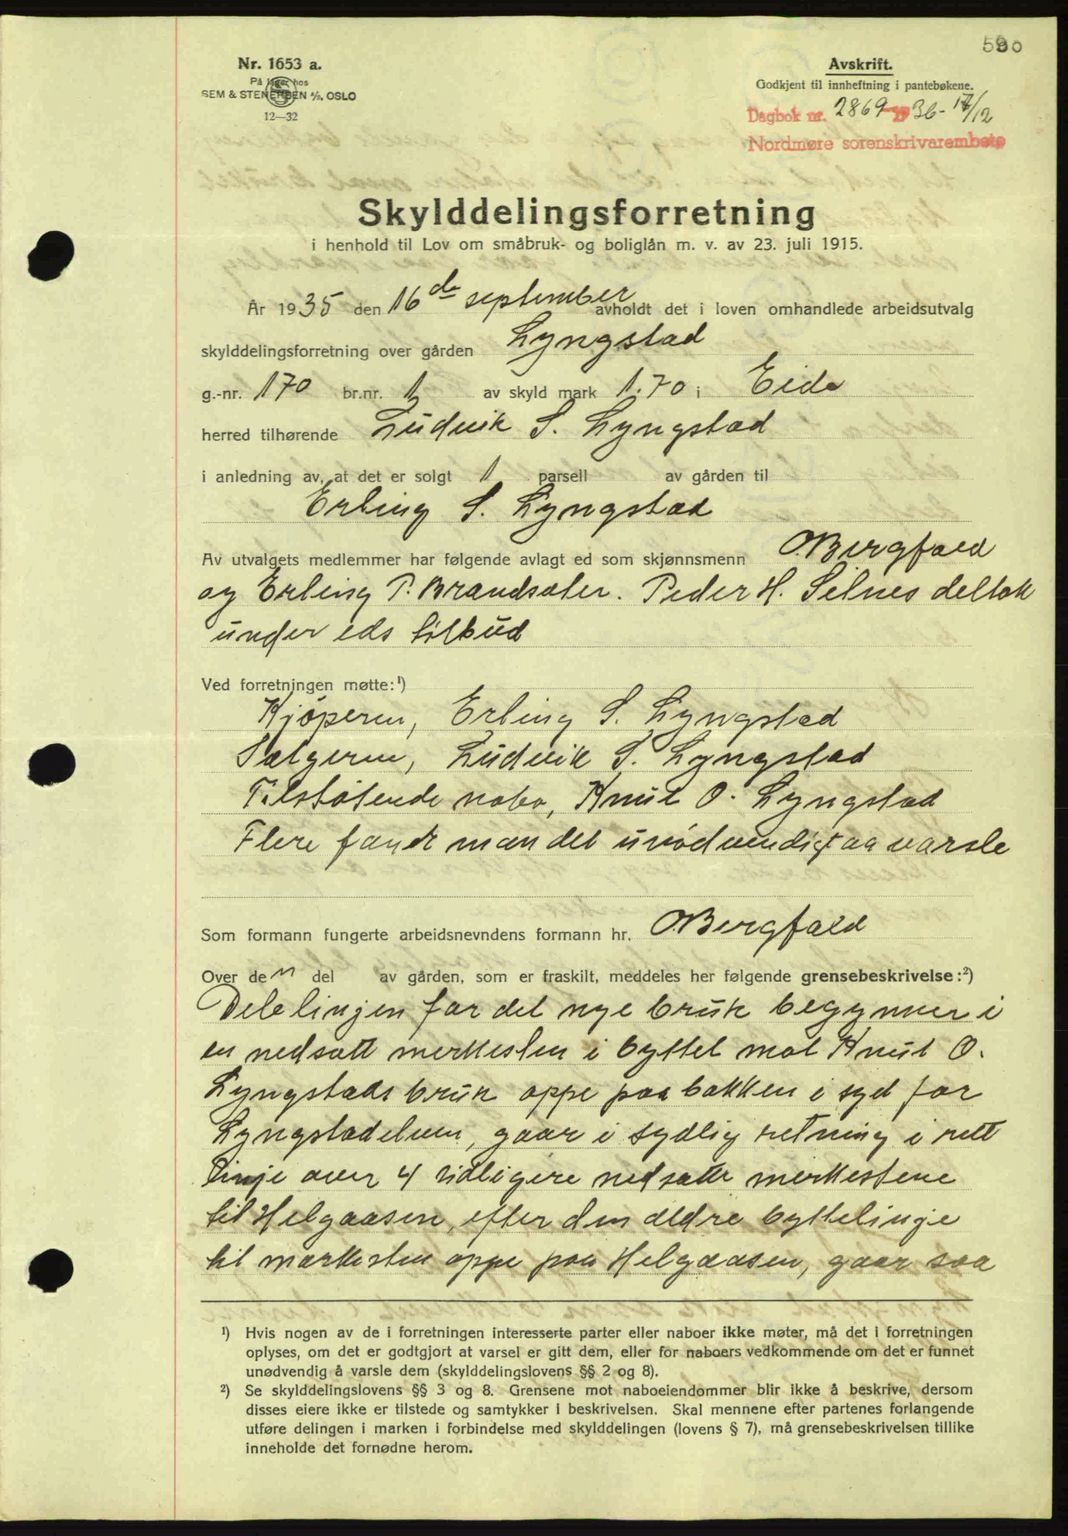 590
Nr. 1653 a.
På lager hos
SEM & STENERSEN A/S, OSLO
12—32
Avskrift.
Godkjent til innheftning i pantebøkene.
Dagbok nr. 2869 1936 - 17/12
Nordmøre sorenskrivarembete
Skylddelingsforretning
i henhold til Lov om småbruk- og boliglån m. v. av 23. juli 1915.
År 1935 den 16de september avholdt det i loven omhandlede arbeidsutvalg
skylddelingsforretning over gården Lyngstad
g.-nr. 170 br.nr. 1 av skyld mark 1.70 i Eide
herred tilhørende Ludvik S. Lyngstad
i anledning av, at det er solgt 1 parsell av gården til
Erling S. Lyngstad
Av utvalgets medlemmer har følgende avlagt ed som skjønnsmenn O. Bergfald
og Erling P. Brandsæter. Peder H. Silnes deltok
under eds tilbud
Ved forretningen møtte:¹)
Kjøperen, Erling S. Lyngstad
Sælgeren, Ludvik S. Lyngstad
Tilstøtende nabo, Knut O. Lyngstad
Flere fandt man det unødvendigt aa varsle
Som formann fungerte arbeidsnevndens formann hr. O. Bergfald
Over den del av gården, som er fraskilt, meddeles her følgende grensebeskrivelse:²)
Delelinjen for det nye bruk begynner i
en nedsatt merkesten i byttet mot Knut O.
Lyngstads bruk oppe paa bakken i syd for
Lyngstadelven, gaar i sydlig retning i rett
linje over 4 ydligere nedsatte merkestene
til Helgaasen, efter den ældre byttelinje
til merkesten oppe paa Helgaasen, gaar saa
¹) Hvis nogen av de i forretningen interesserte parter eller naboer ikke møter, må det i forretningen
oplyses, om det er godtgjort at varsel er gitt dem, eller for naboers vedkommende om det er funnet
unødvendig å varsle dem (skylddelingslovens §§ 2 og 8).
²) Se skylddelingslovens §§ 3 og 8. Grensene mot naboeiendommer blir ikke å beskrive, dersom
disses eiere ikke er tilstede og samtykker i beskrivelsen. Skal mennene efter partenes forlangende
utføre delingen i marken i forbindelse med skylddelingen (lovens § 7), må grensebeskrivelsen tillike
inneholde det fornødne herom.